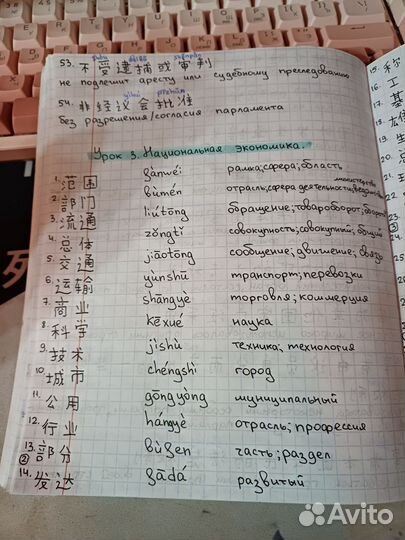 shòu dàibǔ shěnpàn
53. 不受逮捕或审判
не подлежит аресту или судебному преследованию
yìhuì pīzhǔn
54. 非经议会批准
без разрешения/согласия парламента
Урок 3. Национальная экономика.
1. 范围 fànwéi рамка; сфера; область
министерство
2. 部门 bùmén отрасль; сфера деятельности; ведомство
3. 流通 liútōng обращение; товарооборот; оборот
4. 总体 zǒngtǐ совокупность; совокупный; общий
5. 交通 jiāotōng сообщение; движение; связь
6. 运输 yùnshū транспорт; перевозки
7. 商业 shāngyè торговля; коммерция
8. 科学 kēxué наука
9. 技术 jìshù техника; технология
10. 城市 chéngshì город
11. 公用 gōngyòng муниципальный
12. 行业 hángyè отрасль; профессия
13. 部分 bùfen часть; раздел
②
14. 发达 fādá развитый
Avito